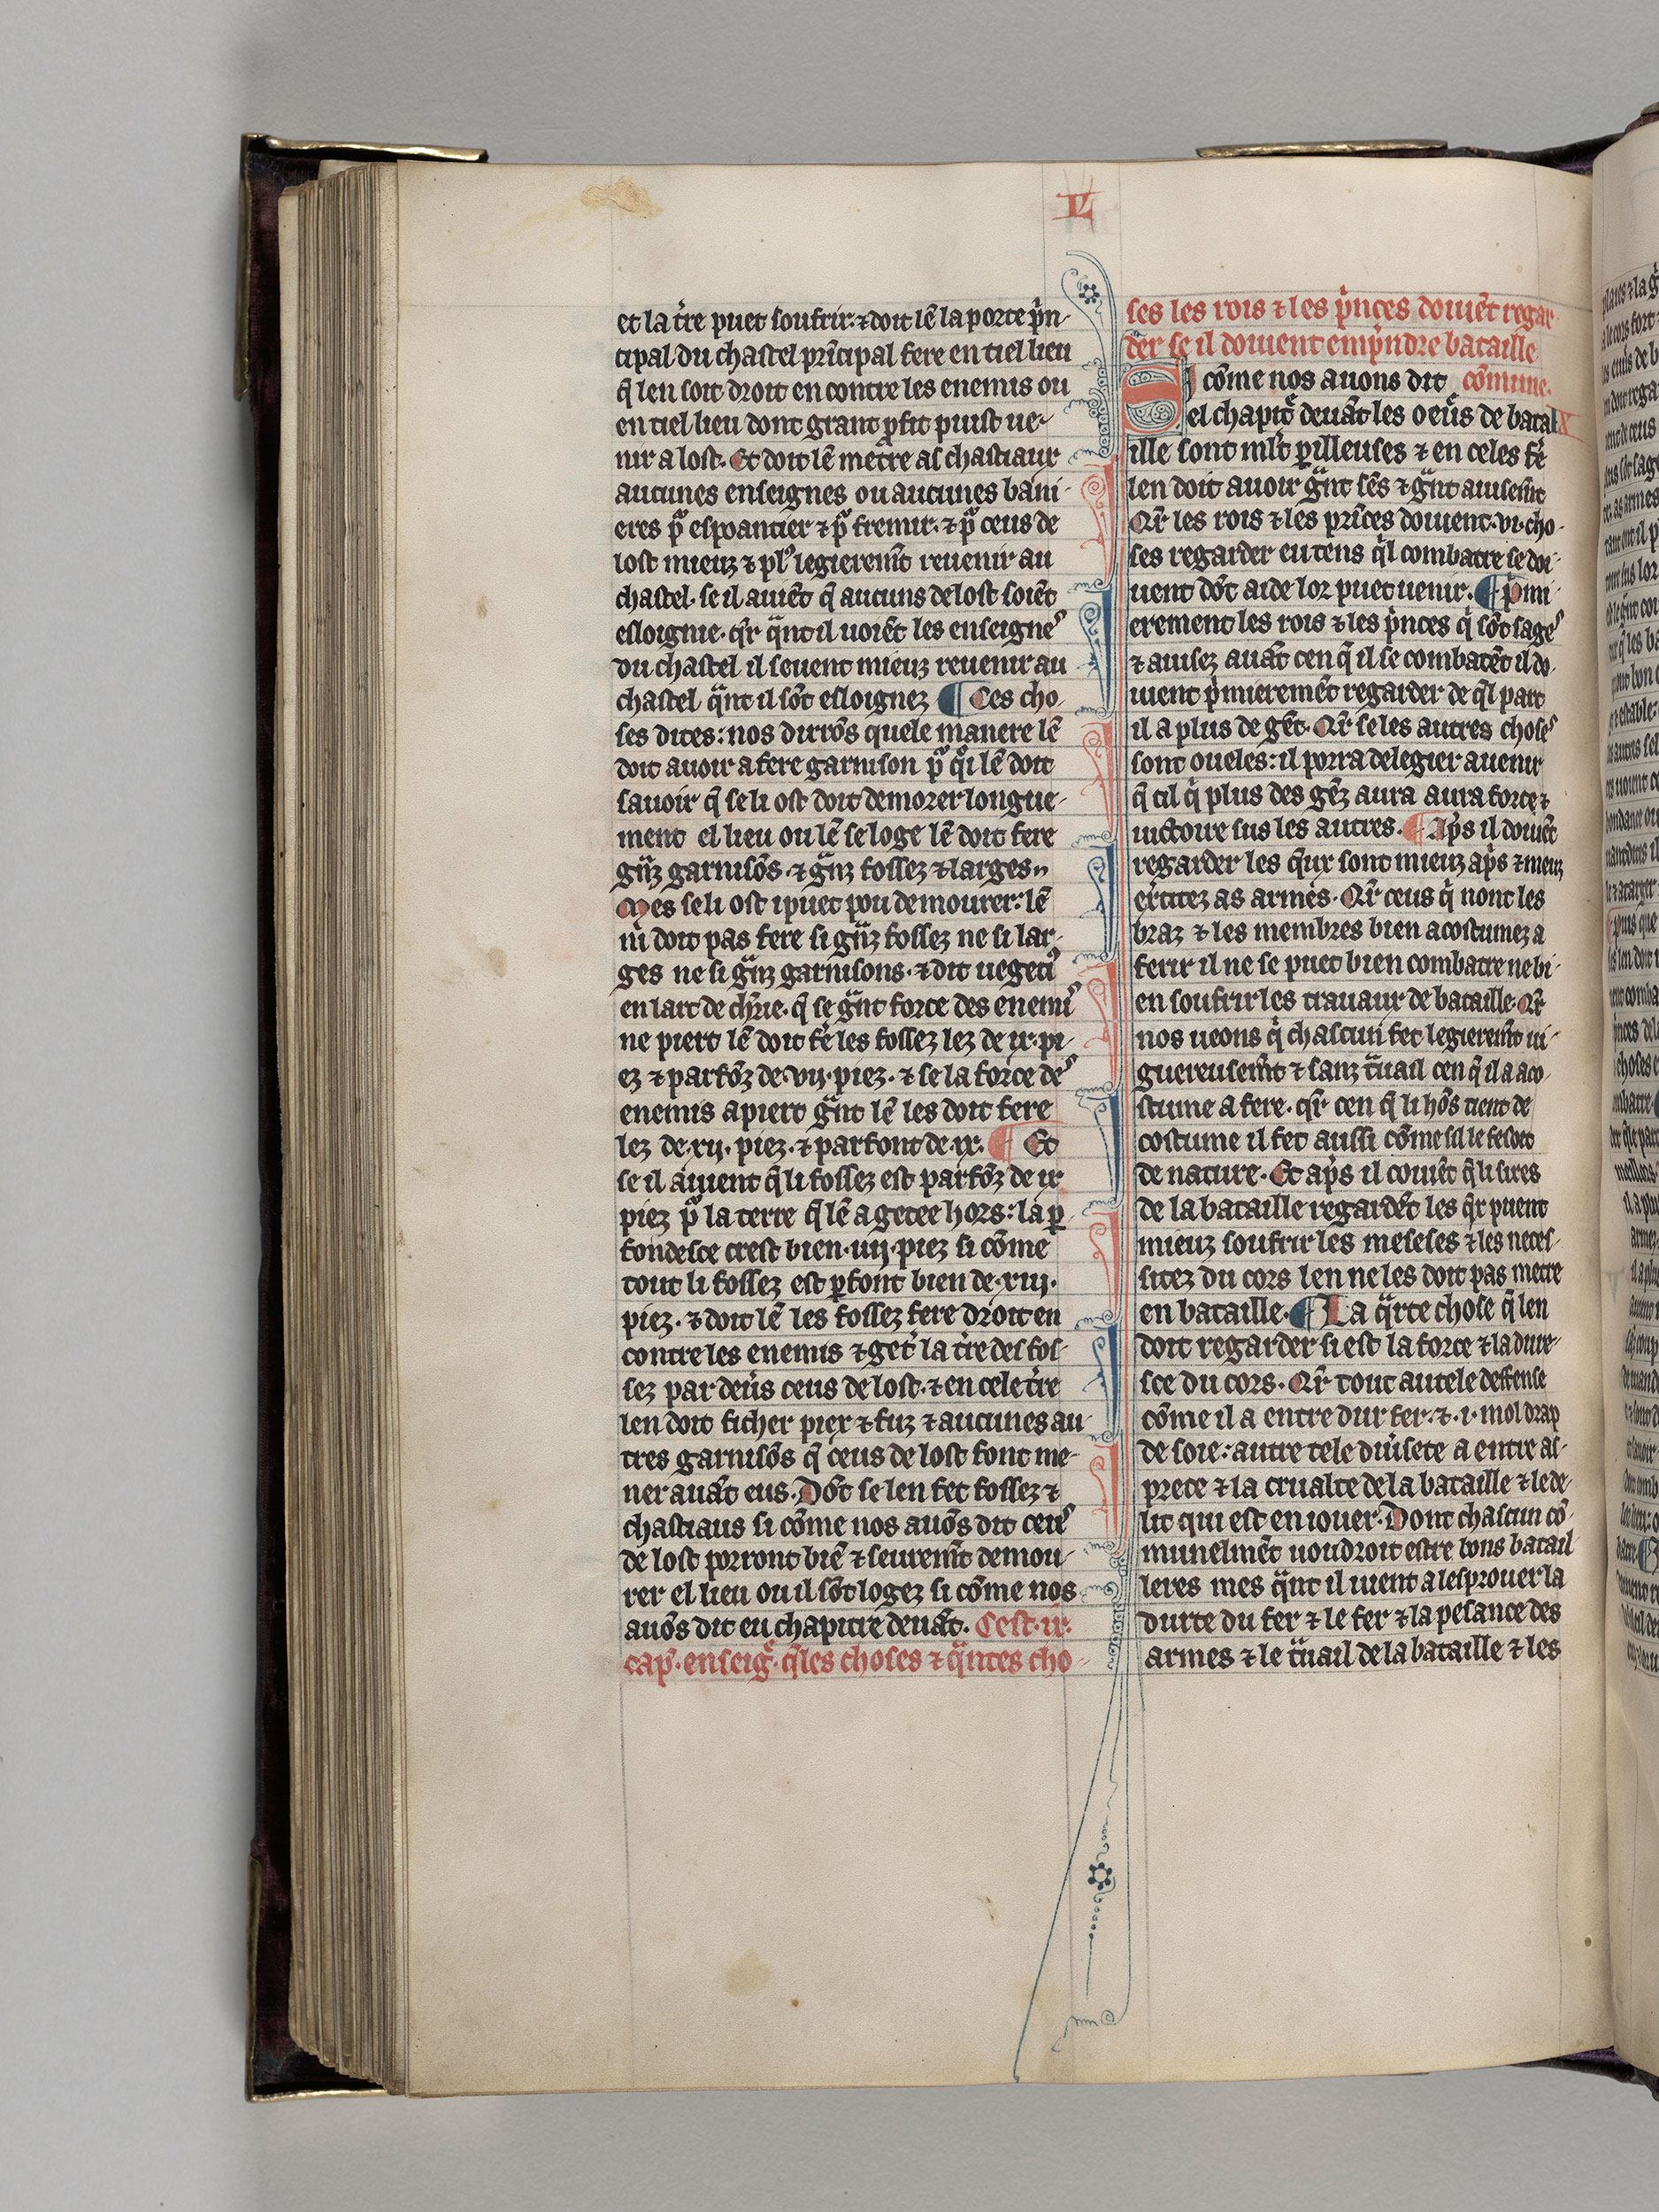 L
et la t̾re puet soufrir: ⁊ doit lē la porte p̾n-
cipal du chastel prīcipal fere en tiel lieu
q̄ len soit droit en contre les enemis ou
en tiel lieu dont grant ꝓfit puist ue-
nir a lost. Et doit lē metre as chastiaux
aucunes enseignes ou aucunes bani-
eres pᵃ espoantier ⁊ pᵃ fremir. ⁊ pᵃ ceus de
lost mieuz ⁊ plꝰ legierem̄t reuenir au
chastel. se il auiēt q̄ aucuns de lost soiēt
esloignie. q̄r qᵃnt il uoiēt les enseigneˢ
du chastel il seuent mieuz reuenir au
chastel qᵃnt il sōt esloignez ¶ Ces cho-
ses dites: nos dirrōs quele manere lē
doit auoir a fere garnison pᵃ qᵒi lē doit
sauoir q̄ se li ost doit demorer longue-
ment el lieu ou lē se loge lē doit fere
gᵃnz garnisōs. ⁊ gᵃnz fossez ⁊ larges
Mes se li ost i puet pou demourer: lē
ni doit pas fere si gᵃnz fossez ne si lar-
ges ne si gᵃnz garnisons. ⁊ dit uegeciꝰ
en lart de ch̾rie. q̄ se gᵃnt force des enemiˢ
ne piert lē doit fe̾ les fossez lez de ix. pi-
ez ⁊ parfōz de vij. piez. ⁊ se la force deˢ
enemis apiert gᵃnt lē les doit fere
lez de. xij. piez. ⁊ parfont de. ix. ¶ Et
se il auient q̄ li fossez est parfōz de ix
piez pᵃ la terre q̄ lē a getee hors: la ꝑ
fondesce crest bien. iiij. piez si cōme
tout li fossez est ꝑfont bien de. xiij.
piez. ⁊ doit lē les fossez fere droit en
contre les enemis ⁊ get̾ la t̾re des fos-
sez par deu̾s ceus de lost. ⁊ en cele t̾re
len doit ficher piex ⁊ fuz ⁊ aucunes au-
tres garnisōs q̄ ceus de lost font me-
ner auāt eus. Dōt se len fet fossez ⁊
chastiaus si cōme nos auōs dit ceuˢ
de lost porront biē ⁊ seurem̄t demou-
rer el lieu ou il sōt logez si cōme nos
auōs dit eu chapitre deuāt. Cest. ix.
cap̾. enseig̾. q̄les choses ⁊ qᵃntes cho-
ses les rois ⁊ les p̾nces doiuēt regar-
der se il doiuent emp̾ndre bataille
Si cōme nos auons dit cōmune.
el chapit̾ deuāt les oeu̾s de batai
X
ille sont ml̾t ꝑilleuses ⁊ en celes fe̾
len doit auoir gᵃnt sēs ⁊ gᵃnt auisem̄t
Q̄r les rois ⁊ les prīces doiuent. vi. cho-
ses regarder eu tens q̄l combatre se doi-
uent dōt aide lor puet uenir. ¶ p̾mi-
erement les rois ⁊ les p̾nces q̾ sōt sageˢ
⁊ auisez auāt cen q̄ il se combatēt il do-
iuent p̾mieremēt regarder de q̄l part
il a plus de gēt. Q̄r se les autres choseˢ
sont oueles: il porra de legier auenir
q̄ cil q̾ plus des gēz aura aura force ⁊
uictoire sus les autres. ¶ Ap̾s il doiuēt
regarder les q̄ux sont mieuz ap̾s ⁊ mieuz
exc̾itez as armes. Q̄r ceus q̾ nont les
braz ⁊ les membres bien acostumez a
ferir il ne se puet bien combatre ne bi-
en soufrir les trauaux de bataille. Q̄r
nos ueons q̄ chascun fet legierem̄t ui-
guereusem̄t ⁊ sanz tᵃuail cen q̄ il a aco-
stume a fere. q̄r cen q̄ li hōs tient de
costume il fet aussi cōme sil le fesoit
de nature. Et ap̾s il couiēt q̄ li sires
de la bataille regardēt les q̄x puent
mieuz soufrir les meseses ⁊ les neces-
sitez du cors len ne les doit pas metre
en bataille. ¶ La qᵃrte chose q̄ len
doit regarder si est la force ⁊ la dure-
sce du cors. Q̄r tout autele deffense
cōme il a entre dur fer. ⁊. i. mol drap
de soie: autre tele diu̾sete a entre as-
prete ⁊ la crualte de la bataille ⁊ le de-
lit qui est en iouer. Dont chascun cō-
munelmēt uoudroit estre bons batail
leres mes qᵃnt il uient a lesprouer la
durte du fer ⁊ le fer ⁊ la pesance des
armes ⁊ le tᵃuail de la bataille ⁊ les